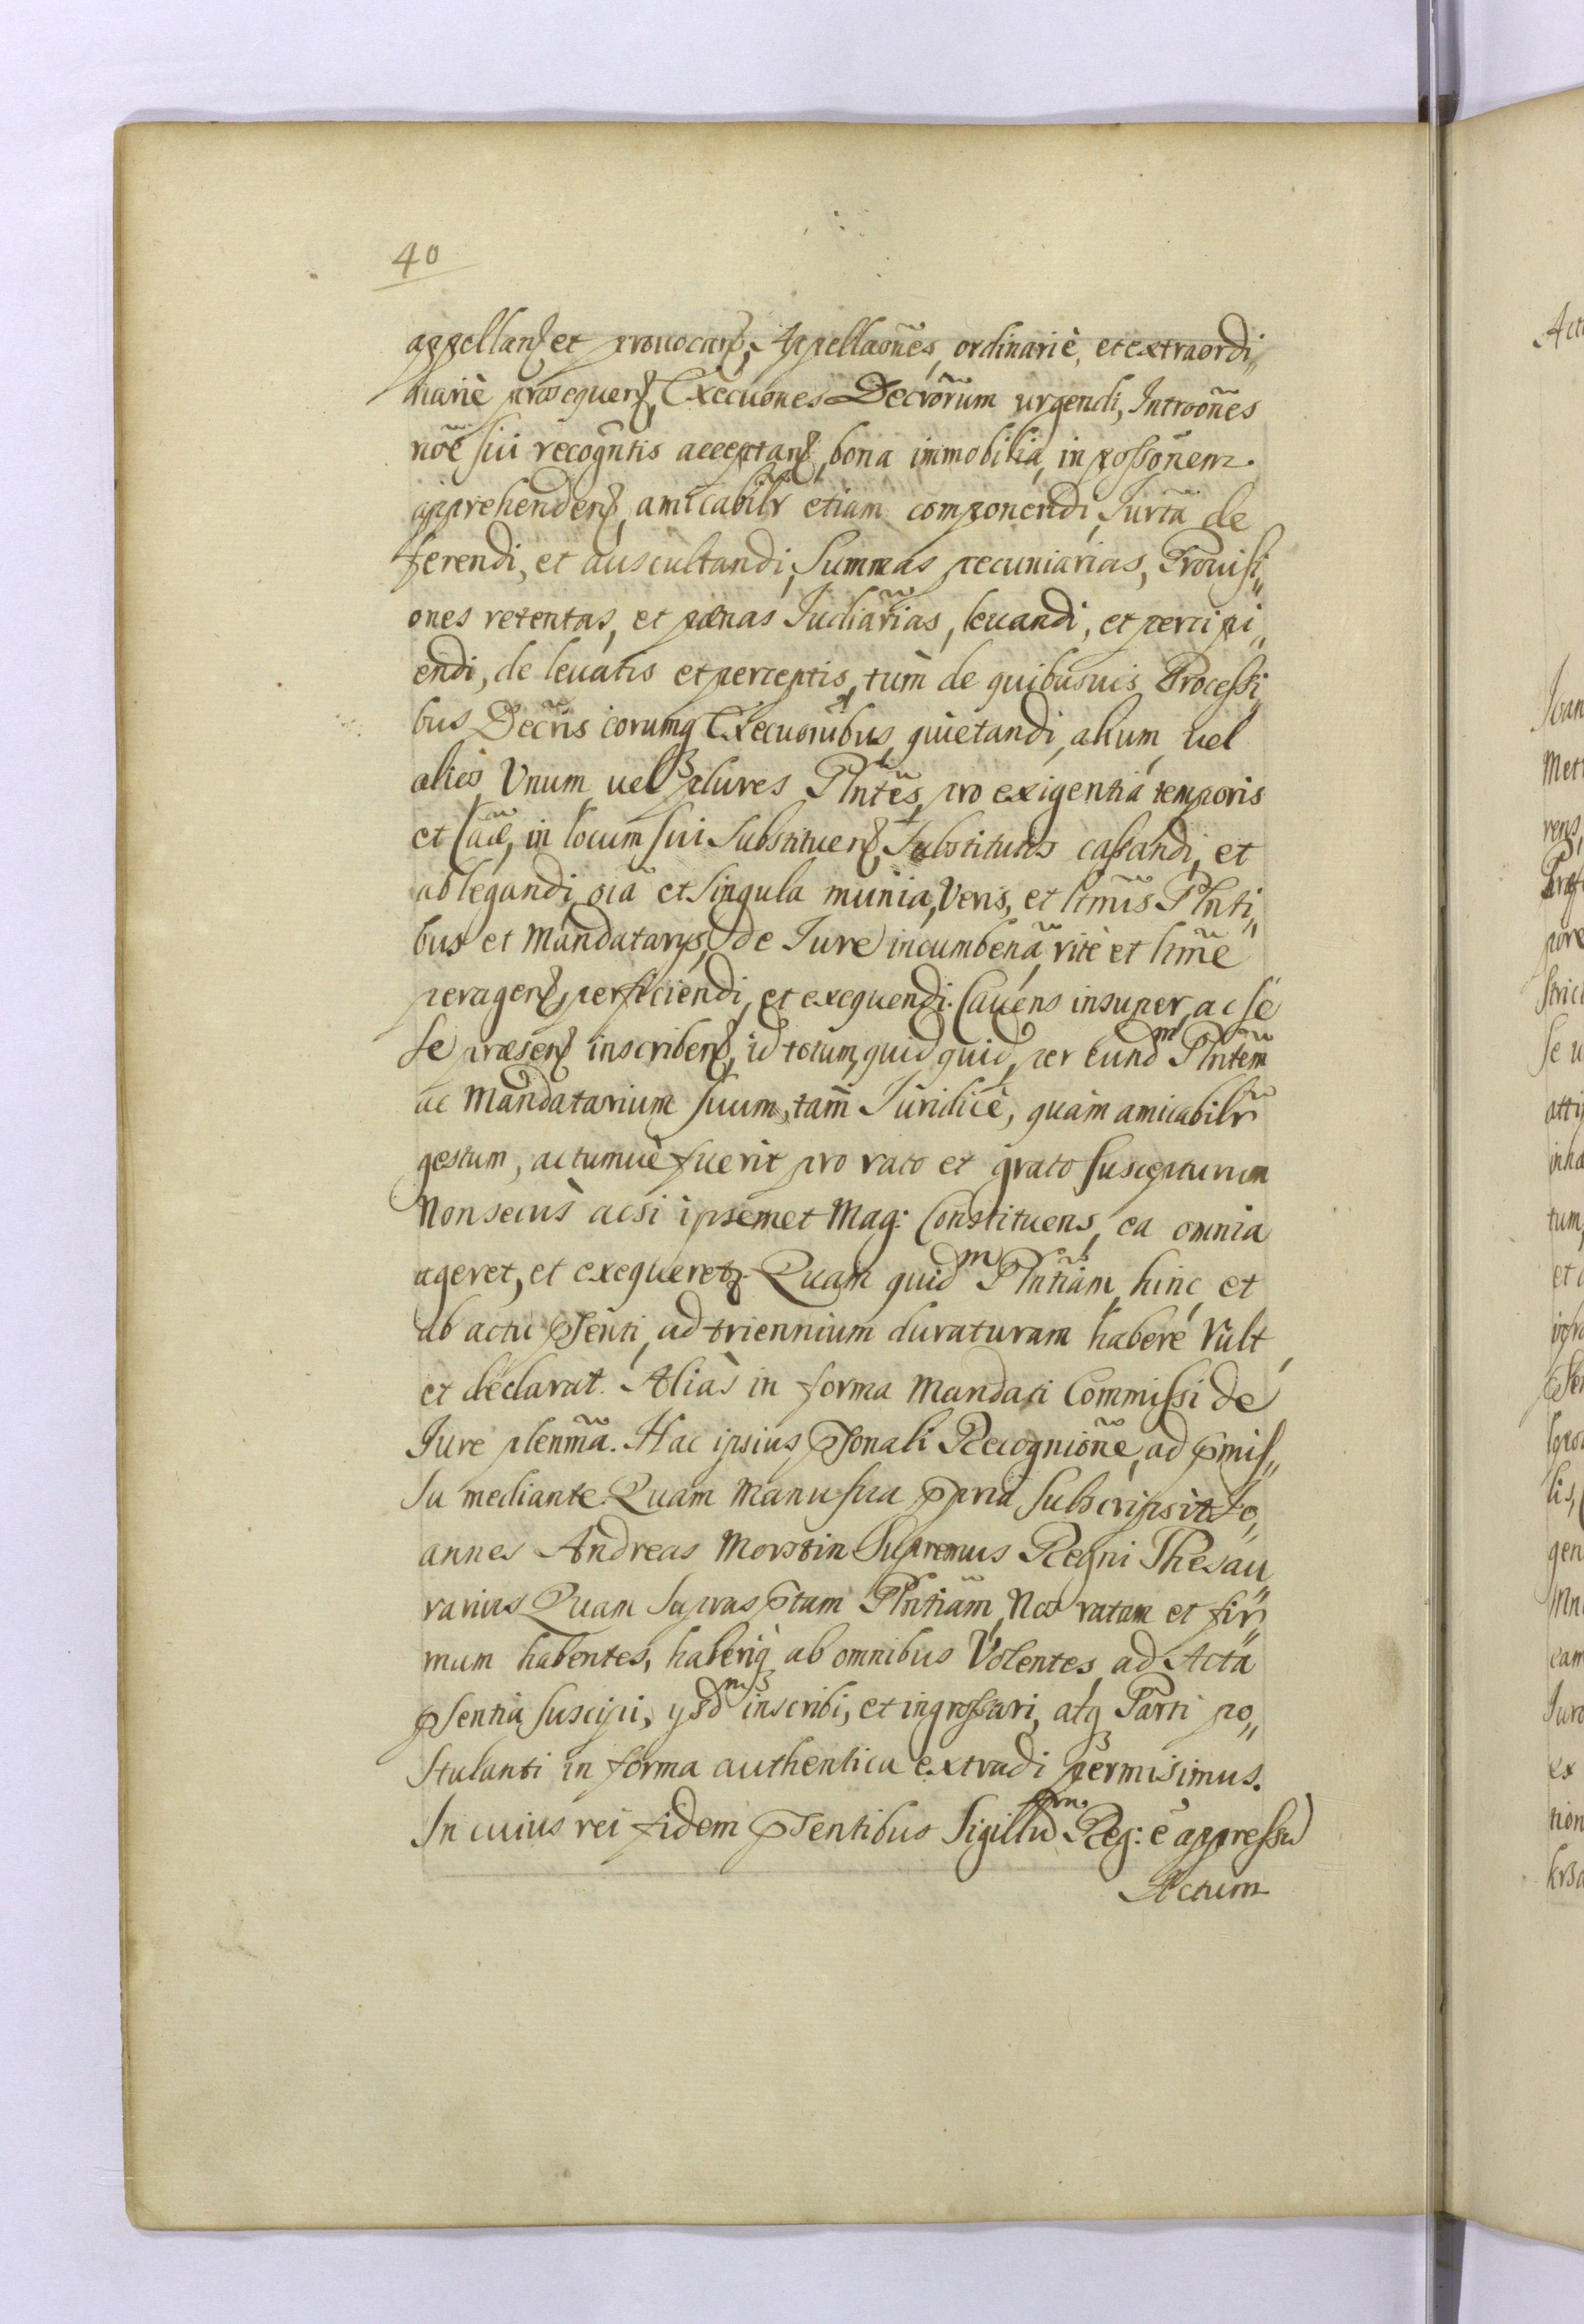 40
appellan₰ et prouocan₰, Appellaões, ordinariè, et extraordi„
nariè prosequen₰, Execuones Decrõrum urgendi, Introões
nõe sui recogñtis acceptan₰, bona immobilia, in possoñem
apprehenden₰, amicabilr̃ etiam componendi, Jurta᷈ de
ferendi, et auscultandi, Summas pecuniarias, Prouisi„
ones retentas, et pænas Judiar̃ias, leuandi, et percipi„
endi, de leuatis et perceptis, tùm de quibusuis Processi„
bus Decr̃is eorumq₃ Execuonibus, quietandi, alium, uel
alios, Vnum uel plures Plntẽs, pro exigentia temporis
et Caũæ, in locum sui Substituen₰, Substitutos cassandi, et
ablegandi, oia᷈ et singula munia, Veris, et ltmĩs Plnti„
bus et Mandatarys, de Jure incumbeña, ritè et ltmẽ
peragen₰, perficiendi, et exequendi. Cauens insuper, ac se
se præsen₰ inscriben₰, id totum, quid quid, per Eundᵐ Plntẽm
ac Mandatarium suum, tam᷈ Juridicè, quàm amicabilr̃
gestum, actumuè fuerit pro rato et grato suscepturum
Non secùs acsi ipsemet Mag: Constituens, ea omnia
ageret, et exequeretr. Quam quidᵐ Plntĩam, hinc et
ab actu p̱senti, ad triennium duraturam habere Vult,
et declarat. Aliàs in forma Mandati Commissi de
Jure plenm̃a. Hac ipsius p̱sonali Recognioñe, ad p̱mis„
sa mediante. Quam manu sua p̱pria subscripsit Jo„
annes Andreas Morstin Supremus Regni Thesau„
rarius Quam suprasp̱tam Plntĩam, Nos ratam et fir„
mum habentes, haberiq₃ ab omnibus Volentes, ad Acta
p̱sentia suscipi, ysdᵐ inscribi, et ingrossari, atq₃ Parti po„
stulanti in forma authentica extradi permisimus.
In cuius rei fidem p̱sentibus Sigillũ Reg: ẽ appressũ
Actum